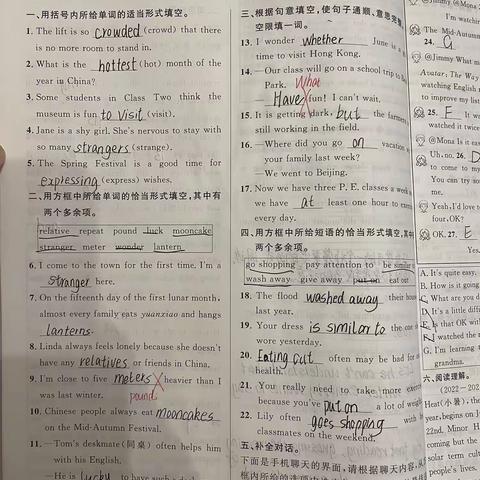 一、用括号内所给单词的适当形式填空。
1. The lift is so crowded (crowd) that there is no more room to stand in.
2. What is the hottest (hot) month of the year in China?
3. Some students in Class Two think the museum is fun to visit (visit).
4. Jane is a shy girl. She's nervous to stay with so many strangers (strange).
5. The Spring Festival is a good time for expressing (express) wishes.
二、用方框中所给单词的恰当形式填空,其中有两个多余项。
relative repeat pound luck mooncake
stranger meter wonder lantern
6. I come to the town for the first time. I'm a stranger here.
7. On the fifteenth day of the first lunar month, almost every family eats yuanxiao and hangs lanterns.
8. Linda always feels lonely because she doesn't have any relatives or friends in China.
9. I'm close to five meters heavier than I was last winter.
pound
10. Chinese people always eat mooncakes on the Mid-Autumn Festival.
11. —Tom's deskmate (同桌) often helps him with his English.
—He is lucky to have such a
三、根据句意填空,使句子通顺、意思完整,
空限填一词。
13. I wonder whether June is a
time to visit Hong Kong.
14. —Our class will go on a school trip to
Park.
What
— Have fun! I can't wait.
15. It is getting dark, but the farmers
still working in the field.
16. —Where did you go on vacation
your family last week?
—We went to Beijing.
17. Now we have three P. E. classes a week
we have at least one hour to exercise
every day.
四、用方框中所给短语的恰当形式填空,其中
两个多余项。
go shopping pay attention to be similar
wash away give away put on eat out
18. The flood washed away their house
last year.
19. Your dress is similar to the one
wore yesterday.
20. Eating out often may be bad for
health.
21. You really need to take more exercise
because you've put on a lot of weight
22. Lily often goes shopping with
classmates on the weekend.
五、补全对话。
下面是手机聊天的界面,请根据聊天内容,
@Jimmy @Mona
I'm watching
The Mid-Autumn
24. G
@Jimmy What m
Avatar: The Way
watching English
to improve my list
25. F It w
watched it twice
@Mona Is it easy
Uh, no. 26. D
to come to my
You can try so
me.
Yeah, I'd love to
four, OK?
OK. 27. E
A. It's quite easy,
B. How is it going
C. What are you d
D. It's a little diffic
E. Is that OK with
F. I watched the m
G. I'm learning t
grandma.
六、阅读理解。
(2022—202
Heat(小暑), the
year, begins on J
22nd. Minor H
coming but the
solar term cult
people's lives.